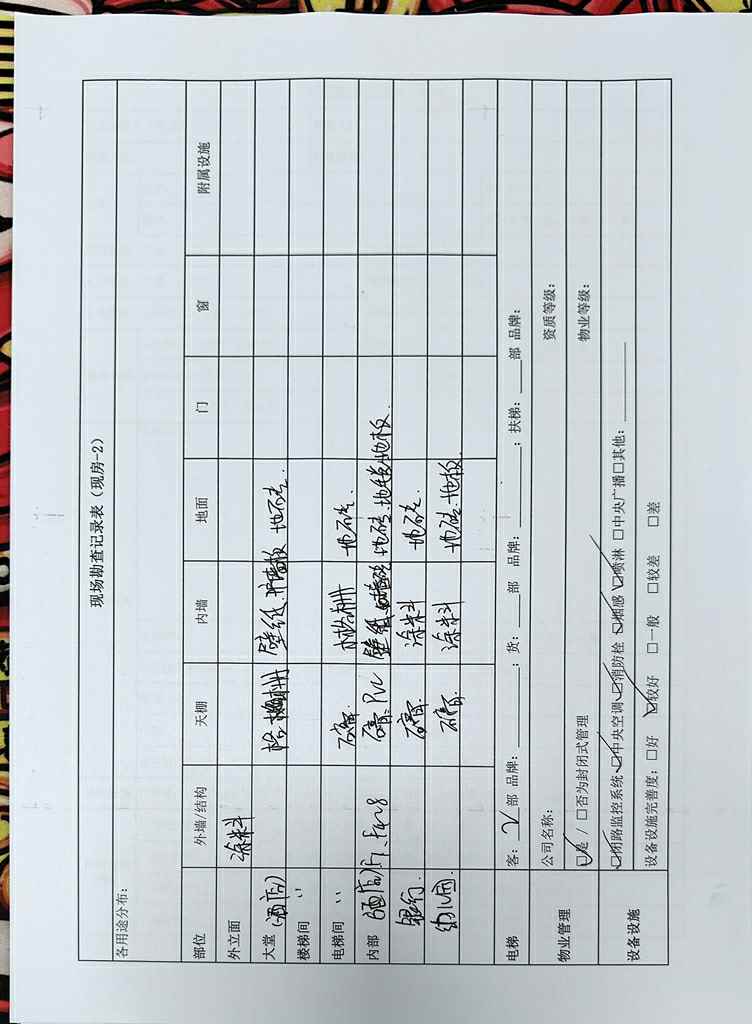 现场勘查记录表（现房-2）
各用途分布：
部位 外墙/结构 天棚 内墙 地面 门 窗 附属设施
外立面 涂料
大堂（酒店） 格栅 壁纸 地石专.
楼梯间 〃
电梯间 〃 石膏. 格栅 地石专.
内部 （酒店） 石膏、PVC 壁纸 地砖、地毯、地板.
银行. 石膏. 涂料 地砖.
幼儿园. 石膏. 涂料 地砖、地板.
电梯 客：2部 品牌： ；货： 部 品牌： ；扶梯： 部 品牌：
物业管理 公司名称： 资质等级：
☑是 / □否为封闭式管理 物业等级：
设备设施 ☑闭路监控系统 ☑中央空调 ☑消防栓 ☑烟感 ☑喷淋 □中央广播 □其他：
设备设施完善度：□好 ☑较好 □一般 □较差 □差